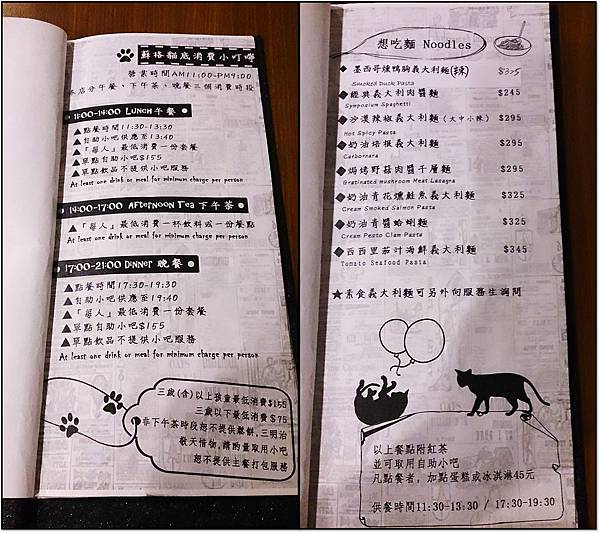 蘇格貓底消費小叮嚀
營業時間AM11:00-PM9:00
本店分午餐、下午茶、晚餐三個消費時段
11:00-14:00 LUNCH 午餐
▲點餐時間11:30-13:30
▲自助小吧供應至13:40
▲「每人」最低消費一份套餐
▲單點自助小吧$155
▲單點飲品不提供小吧服務
At least one drink or meal for minimum charge per person
14:00-17:00 Afternoon Tea 下午茶
▲「每人」最低消費一杯飲料或一份餐點
At least one drink or meal for minimum charge per person
17:00-21:00 Dinner 晚餐
▲點餐時間17:30-19:30
▲自助小吧供應至19:40
▲「每人」最低消費一份套餐
▲單點自助小吧$155
▲單點飲品不提供小吧服務
At least one drink or meal for minimum charge per person
三歲(含)以上孩童最低消費$155
三歲以下最低消費$75
非下午茶時段恕不提供鬆餅,三明治
敬天惜物,請酌量取用小吧
恕不提供主餐打包服務
想吃麵 Noodles
◆ 墨西哥燻鴨胸義大利麵(辣) $325
Smoked Duck Pasta
◆ 經典義大利肉醬麵 $245
Symposium Spaghetti
◆ 沙漠辣椒義大利麵(大中小辣) $295
Hot Spicy Pasta
◆ 奶油培根義大利麵 $295
Carbornara
◆ 焗烤野菇肉醬千層麵 $295
Gratinated mushroom Meat Lasagna
◆ 奶油青花燻鮭魚義大利麵 $325
Cream Smoked Salmon Pasta
◆ 奶油青醬蛤蜊麵 $325
Cream Pesto Clam Pasta
◆ 西西里茄汁海鮮義大利麵 $345
Tomato Seafood Pasta
★素食義大利麵可另外向服務生詢問
以上餐點附紅茶
並可取用自助小吧
凡點餐者,加點蛋糕或冰淇淋45元
供餐時間11:30-13:30 / 17:30-19:30